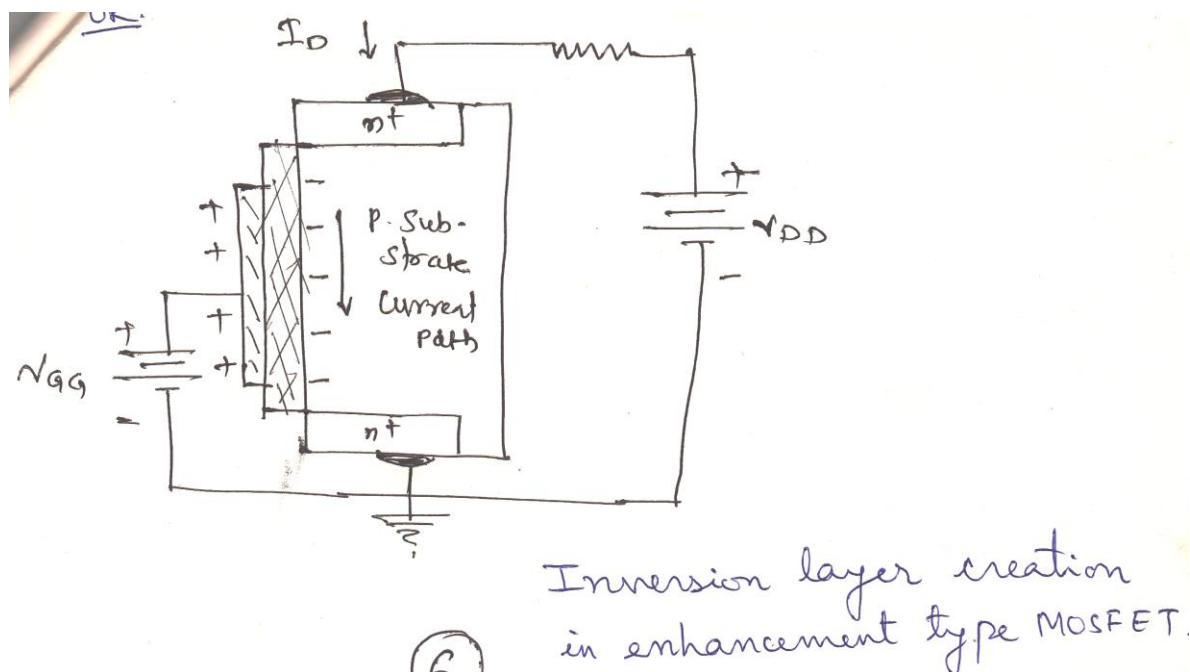 UR.
I_D ↓
n+
+
+
+
+
-
-
-
-
-
P. Sub-
strate
Current
Path
+
V_DD
-
+
V_GG
-
n+
Inversion layer creation
in enhancement type MOSFET.
6